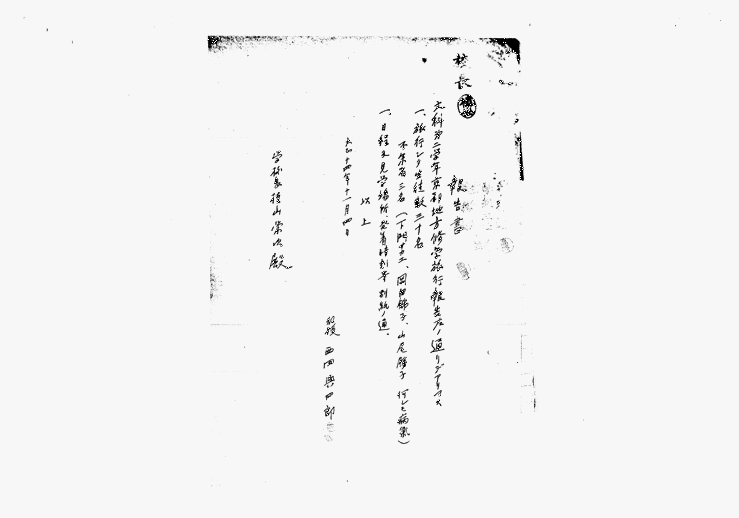 校長
報告書
文科第二學年京都地方修学旅行報告左ノ通リデアリマス
一、旅行シタ生徒数三十名
不参者三名（下間、岡田錦子、山尾勝子 何レモ病氣）
一、日程及見学場所、発着時刻等別紙ノ通。
以上
大正十四年十一月四日
教授 西岡興四郎
学校長 山栄次殿